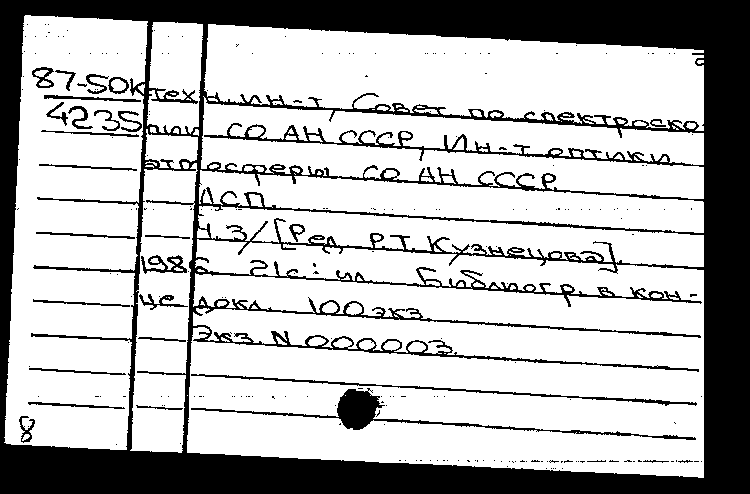 87-50к техн. ин-т, Совет по спектроско-
4235 пии СО АН СССР, Ин-т оптики
атмосферы СО АН СССР.
ДСП.
Ч.3/[Ред. Р.Т. Кузнецова].
1986. 21с: ил. Библиогр. в кон-
це докл. 100экз.
Экз. N 000003.
8